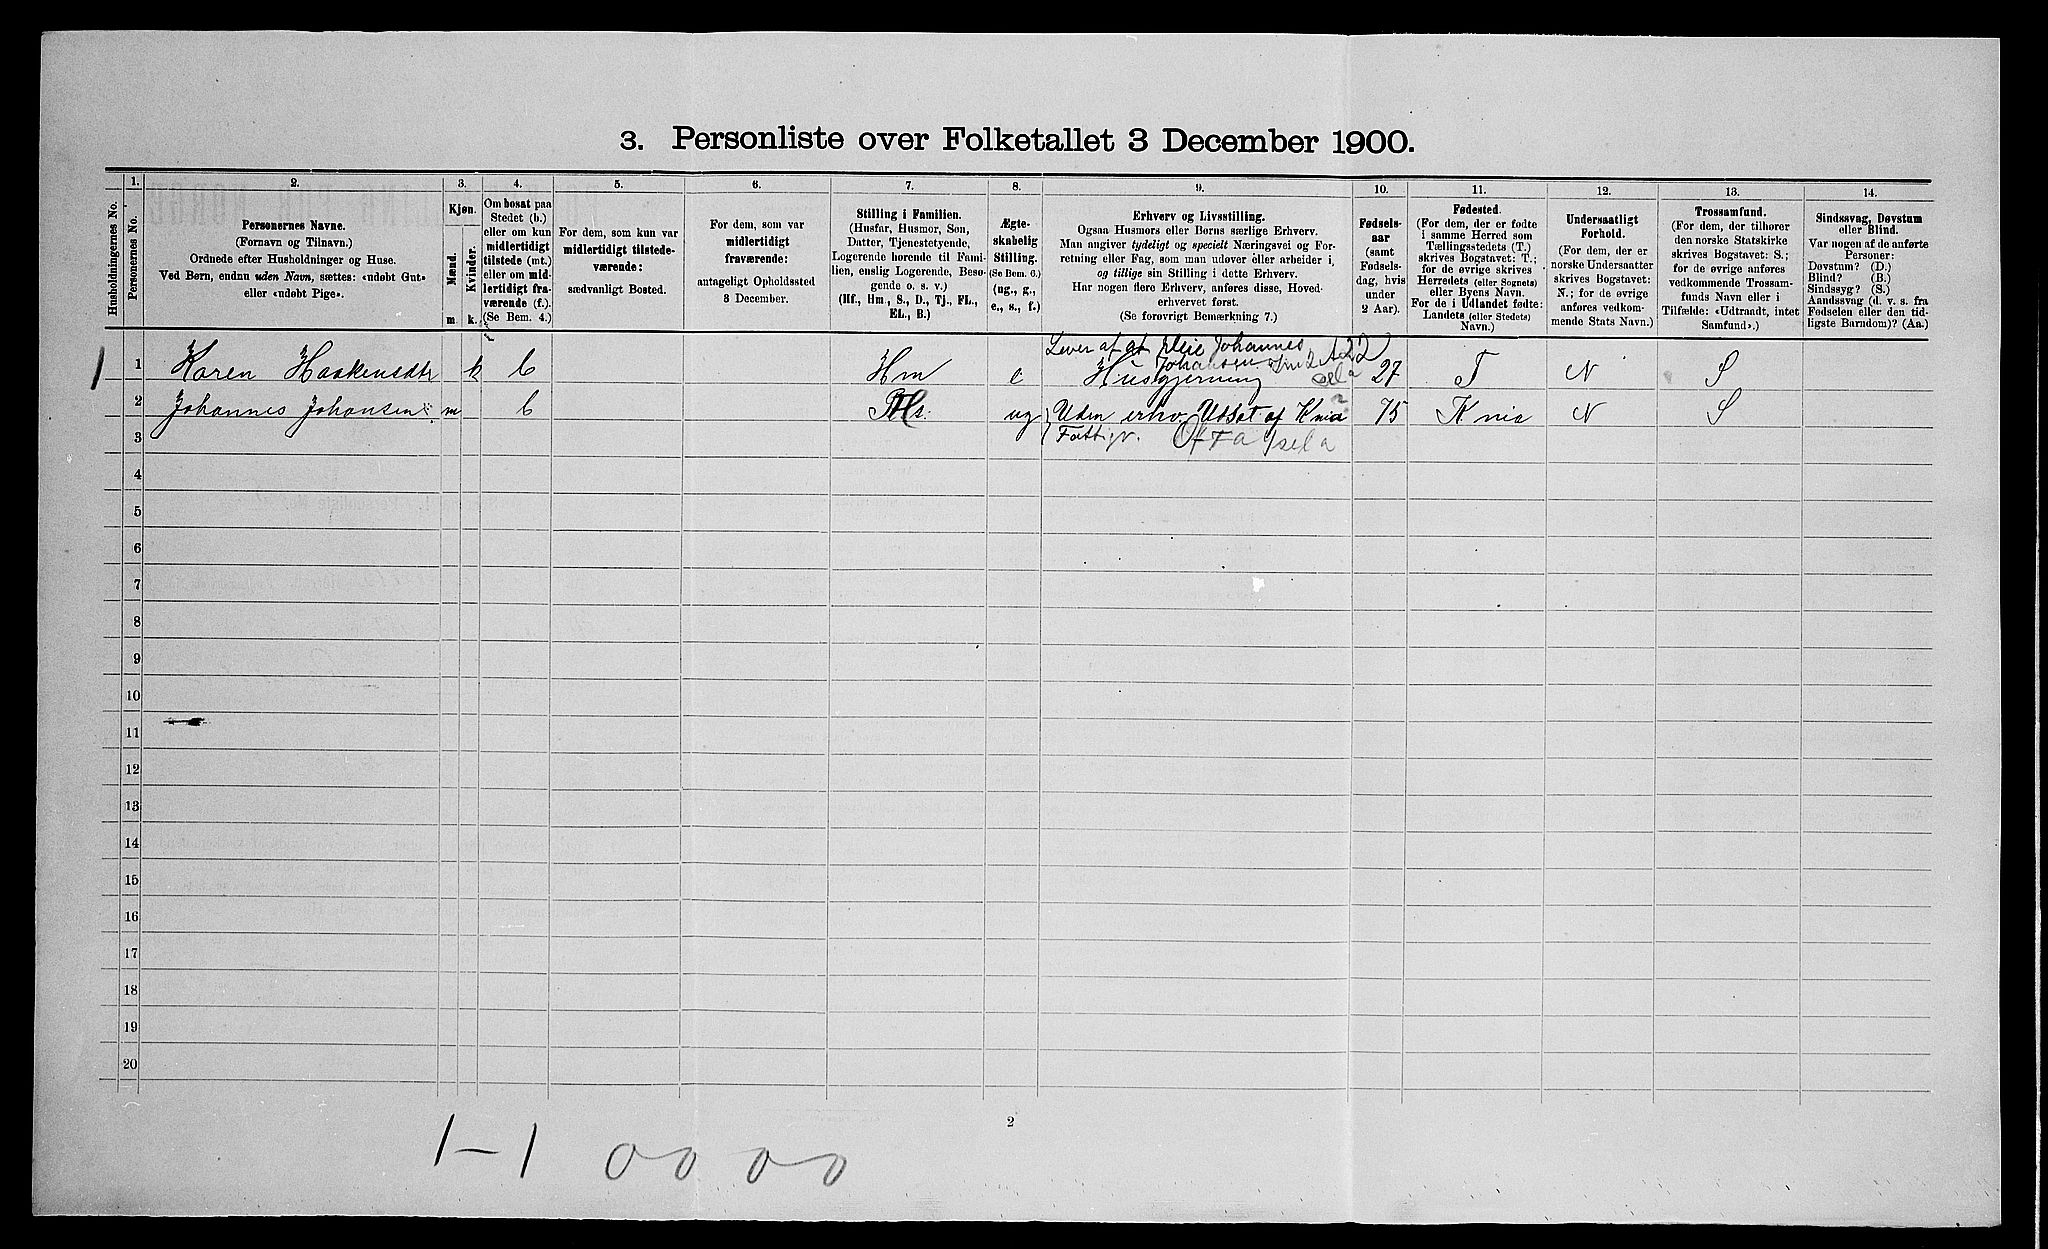 3. Personliste over Folketallet 3 December 1900.
1. 2. 3. 4. 5. 6. 7. 8. 9. 10. 11. 12. 13. 14.
Husholdningernes No.
Personernes No.
Personernes Navne.
(Fornavn og Tilnavn.)
Ordnede efter Husholdninger og Huse.
Ved Børn, endnu uden Navn, sættes: «udøbt Gut»
eller «udøbt Pige».
Kjøn.
Mænd.
Kvinder.
m. k.
Om bosat paa
Stedet (b.)
eller om kun
midlertidigt
tilstede (mt.)
eller om mid-
lertidigt fra-
værende (f.).
(Se Bem. 4.)
For dem, som kun var
midlertidigt tilstede-
værende:
sædvanligt Bosted.
For dem, som var
midlertidigt
fraværende:
antageligt Opholdssted
3 December.
Stilling i Familien.
(Husfar, Husmor, Søn,
Datter, Tjenestetyende,
Logerende hørende til Fami-
lien, enslig Logerende, Besø-
gende o. s. v.)
(Hf., Hm., S., D., Tj., FL.,
EL., B.)
Ægte-
skabelig
Stilling.
(Se Bem. 6.)
(ug., g.,
e., s., f.)
Erhverv og Livsstilling.
Ogsaa Husmors eller Børns særlige Erhverv.
Man angiver tydeligt og specielt Næringsvei og For-
retning eller Fag, som man udøver eller arbeider i,
og tillige sin Stilling i dette Erhverv.
Har nogen flere Erhverv, anføres disse, Hoved-
erhvervet først.
(Se forøvrigt Bemærkning 7.)
Fødsels-
aar
(samt
Fødsels-
dag, hvis
under
2 Aar).
Fødested.
(For dem, der er fødte
i samme Herred som
Tællingsstedets (T.)
skrives Bogstavet: T.;
for de øvrige skrives
Herredets (eller Sognets)
eller Byens Navn.
For de i Udlandet fødte:
Landets (eller Stedets)
Navn.)
Undersaatligt
Forhold.
(For dem, der er
norske Undersaatter
skrives Bogstavet:
N.; for de øvrige
anføres vedkom-
mende Stats Navn.)
Trossamfund.
(For dem, der tilhører
den norske Statskirke
skrives Bogstavet: S.;
for de øvrige anføres
vedkommende Trossam-
funds Navn eller i
Tilfælde: «Udtraadt, intet
Samfund».)
Sindssvag, Døvstum
eller Blind.
Var nogen af de anførte
Personer:
Døvstum? (D.)
Blind? (B.)
Sindssyg? (S.)
Aandssvag (d. v. s. fra
Fødselen eller den tid-
ligste Barndom)? (Aa.)
Lever af at pleie Johannes
Johansen
1 1 Karen Haakensdtr k b Hm e Husgjerning 27 T N S
2 Johannes Johansen m b ug Uden erhv. Udsat af Knia 75 Knia N S
3 Fattigv.
4
5
6
7
8
9
10
11
12
13
14
15
16
17
18
19
20
2
1-1 00 00